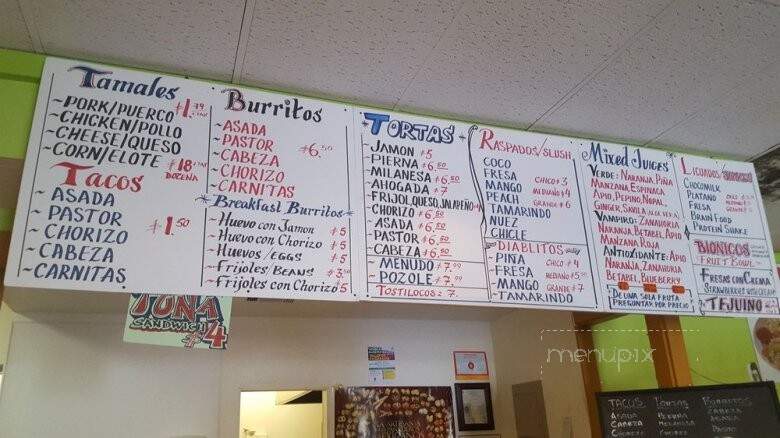 Tamales
~PORK/PUERCO
~CHICKEN/POLLO
~CHEESE/QUESO
~CORN/ELOTE
$1.79 +TAX
$18 +TAX
DOZENA
Tacos
~ASADA
~PASTOR
~CHORIZO
~CABEZA
~CARNITAS
$1.50
Burritos
~ASADA
~PASTOR
~CABEZA
~CHORIZO
~CARNITAS
$6.50
Breakfast Burritos
~Huevo con Jamon $5
~Huevo con Chorizo $5
~Huevos/EGGS $5
~Frijoles/BEANS $3.50
~Frijoles con Chorizo $5
TORTAS
JAMON $5
PIERNA $6.50
MILANESA $6.50
AHOGADA $7
FRIJOL, QUESO, JALAPEÑO
CHORIZO $6.50
ASADA $6.50
PASTOR $6.50
CABEZA $6.50
~MENUDO $7.99
~POZOLE $7.99
TOSTILOCOS $7.
RASPADOS/SLUSH
COCO
FRESA
MANGO
PEACH
TAMARINDO
NUEZ
CHICLE
CHICO $3
MEDIANO $4
GRANDE $6
DIABLITOS
~PIÑA
~FRESA
~MANGO
~TAMARINDO
CHICO $4
MEDIANO $5.50
GRANDE $7
Mixed Juices
VERDE: NARANJA, PIÑA
MANZANA, ESPINACA,
APIO, PEPINO, NOPAL,
GINGER, SAVILA (ALOE VERA)
VAMPIRO: ZANAHORIA
NARANJA, BETABEL, APIO
MANZANA ROJA
ANTIOXIDANTE: APIO
NARANJA, ZANAHORIA
BETABEL, BLUEBERRY
DE UNA SOLA FRUTA
PREGUNTAR POR PRECIO
LICUADOS
CHOCOMILK
PLATANO
FRESA
BRAIN FOOD
PROTEIN SHAKE
BIONICOS
FRUIT BOWL
FRESAS CON CREMA
STRAWBERRIES WITH CREAM
~TEJUINO~
TUNA
SANDWICH
$4
menupix
TACOS TORTAS BURRITOS
ASADA
CABEZA
CHORIZO